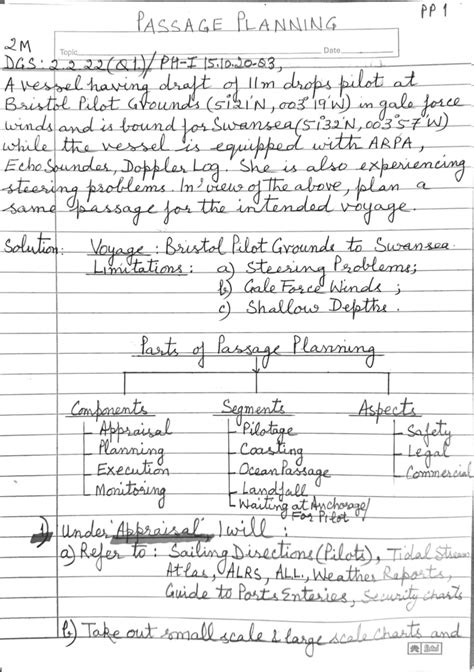 PP 1
PASSAGE PLANNING
2M
Topic
Date
DGS: 2.2.22(Q1)/PH-I 15.10.20-Q3,
A vessel having draft of 11m drops pilot at
Bristol Pilot Grounds (51°21'N, 003°19'W) in gale force
winds and is bound for Swansea (51°32'N, 003°57'W)
while the vessel is equipped with ARPA,
Echo Sounder, Doppler Log. She is also experiencing
steering problems. In view of the above, plan a
same passage for the intended voyage.
Solution: Voyage: Bristol Pilot Grounds to Swansea.
Limitations: a) Steering Problems;
b) Gale Force Winds ;
c) Shallow Depths.
Parts of Passage Planning
Components Segments Aspects
Appraisal Pilotage Safety
Planning Coasting Legal
Execution Ocean Passage Commercial
Monitoring Landfall
Waiting at Anchorage/
For Pilot
1) Under 'Appraisal', I will :
a) Refer to : Sailing Directions (Pilots), Tidal Stream
Atlas, ALRS, ALL, Weather Reports,
Guide to Ports Enteries, Security charts
b) Take out small scale & large scale charts and